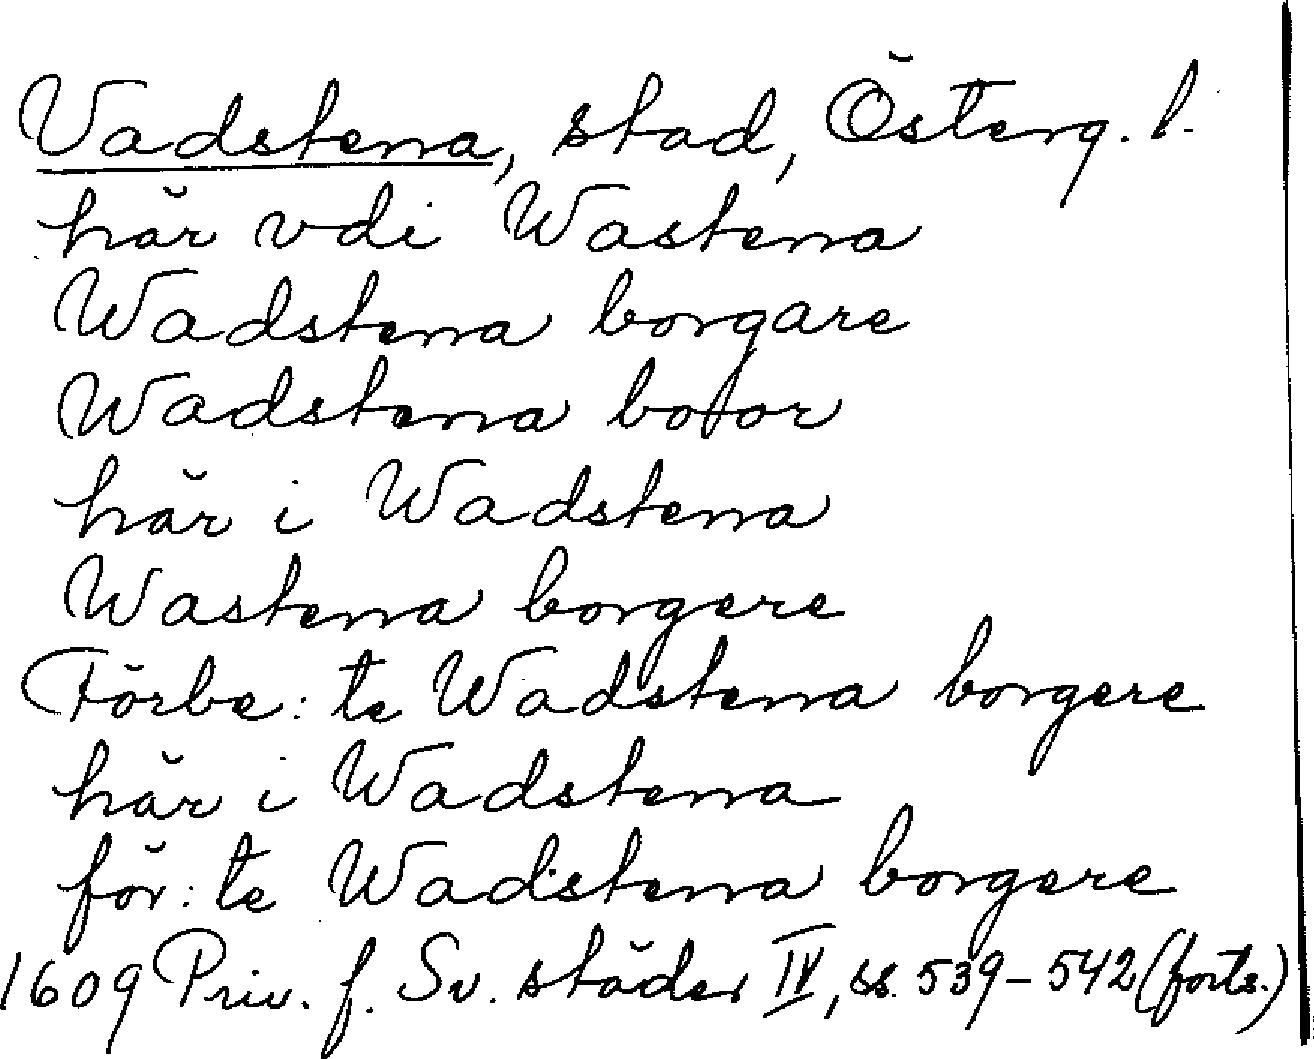 Vadstena, stad, Österg. l.
här vdi Wastena
Wadstena borgare
Wadstena boor
här i Wadstena
Wastena borgere
Förbe: te Wadstena borgere
här i Wadstena
för: te Wadstena borgere
1609 Priv. f. Sv. städer IV, ss. 539-542 (forts.)